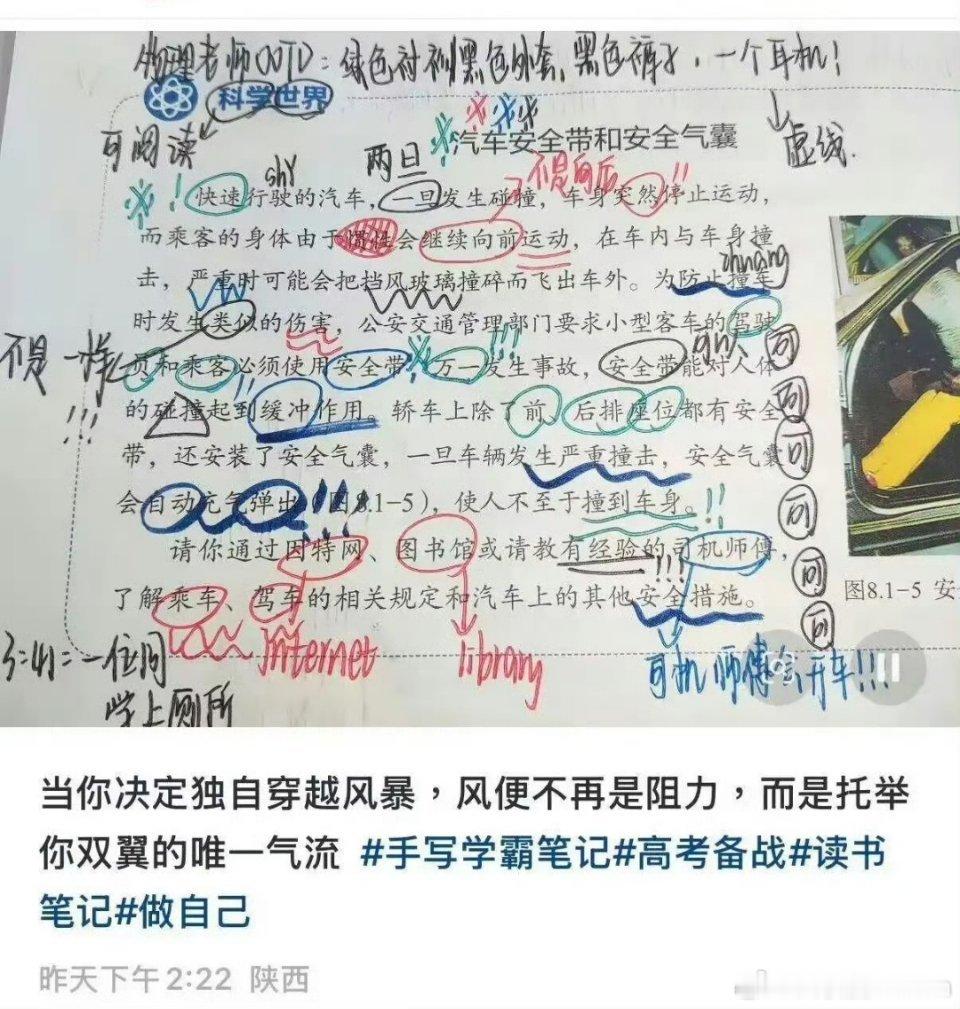 物理老师OOTD：绿色衬衫黑色外套，黑色裤子，一个耳机！
科学世界
可阅读
两旦
汽车安全带和安全气囊
虚线.
shǐ
不是向后
快速行驶的汽车，一旦发生碰撞，车身突然停止运动，
而乘客的身体由于惯性会继续向前运动，在车内与车身撞
zhuàng
击，严重时可能会把挡风玻璃撞碎而飞出车外。为防止撞车
时发生类似的伤害，公安交通管理部门要求小型客车的驾驶
不是一样
!!!
员和乘客必须使用安全带，万一发生事故，安全带能对人体
的碰撞起到缓冲作用。轿车上除了前、后排座位都有安全
带，还安装了安全气囊，一旦车辆发生严重撞击，安全气囊
会自动充气弹出（图8.1-5），使人不至于撞到车身。
请你通过因特网、图书馆或请教有经验的司机师傅，
了解乘车、驾车的相关规定和汽车上的其他安全措施。
图8.1-5 安
一位同
学上厕所
internet
library
司机师傅会开车!!!
当你决定独自穿越风暴，风便不再是阻力，而是托举
你双翼的唯一气流 #手写学霸笔记#高考备战#读书
笔记#做自己
昨天下午2:22 陕西